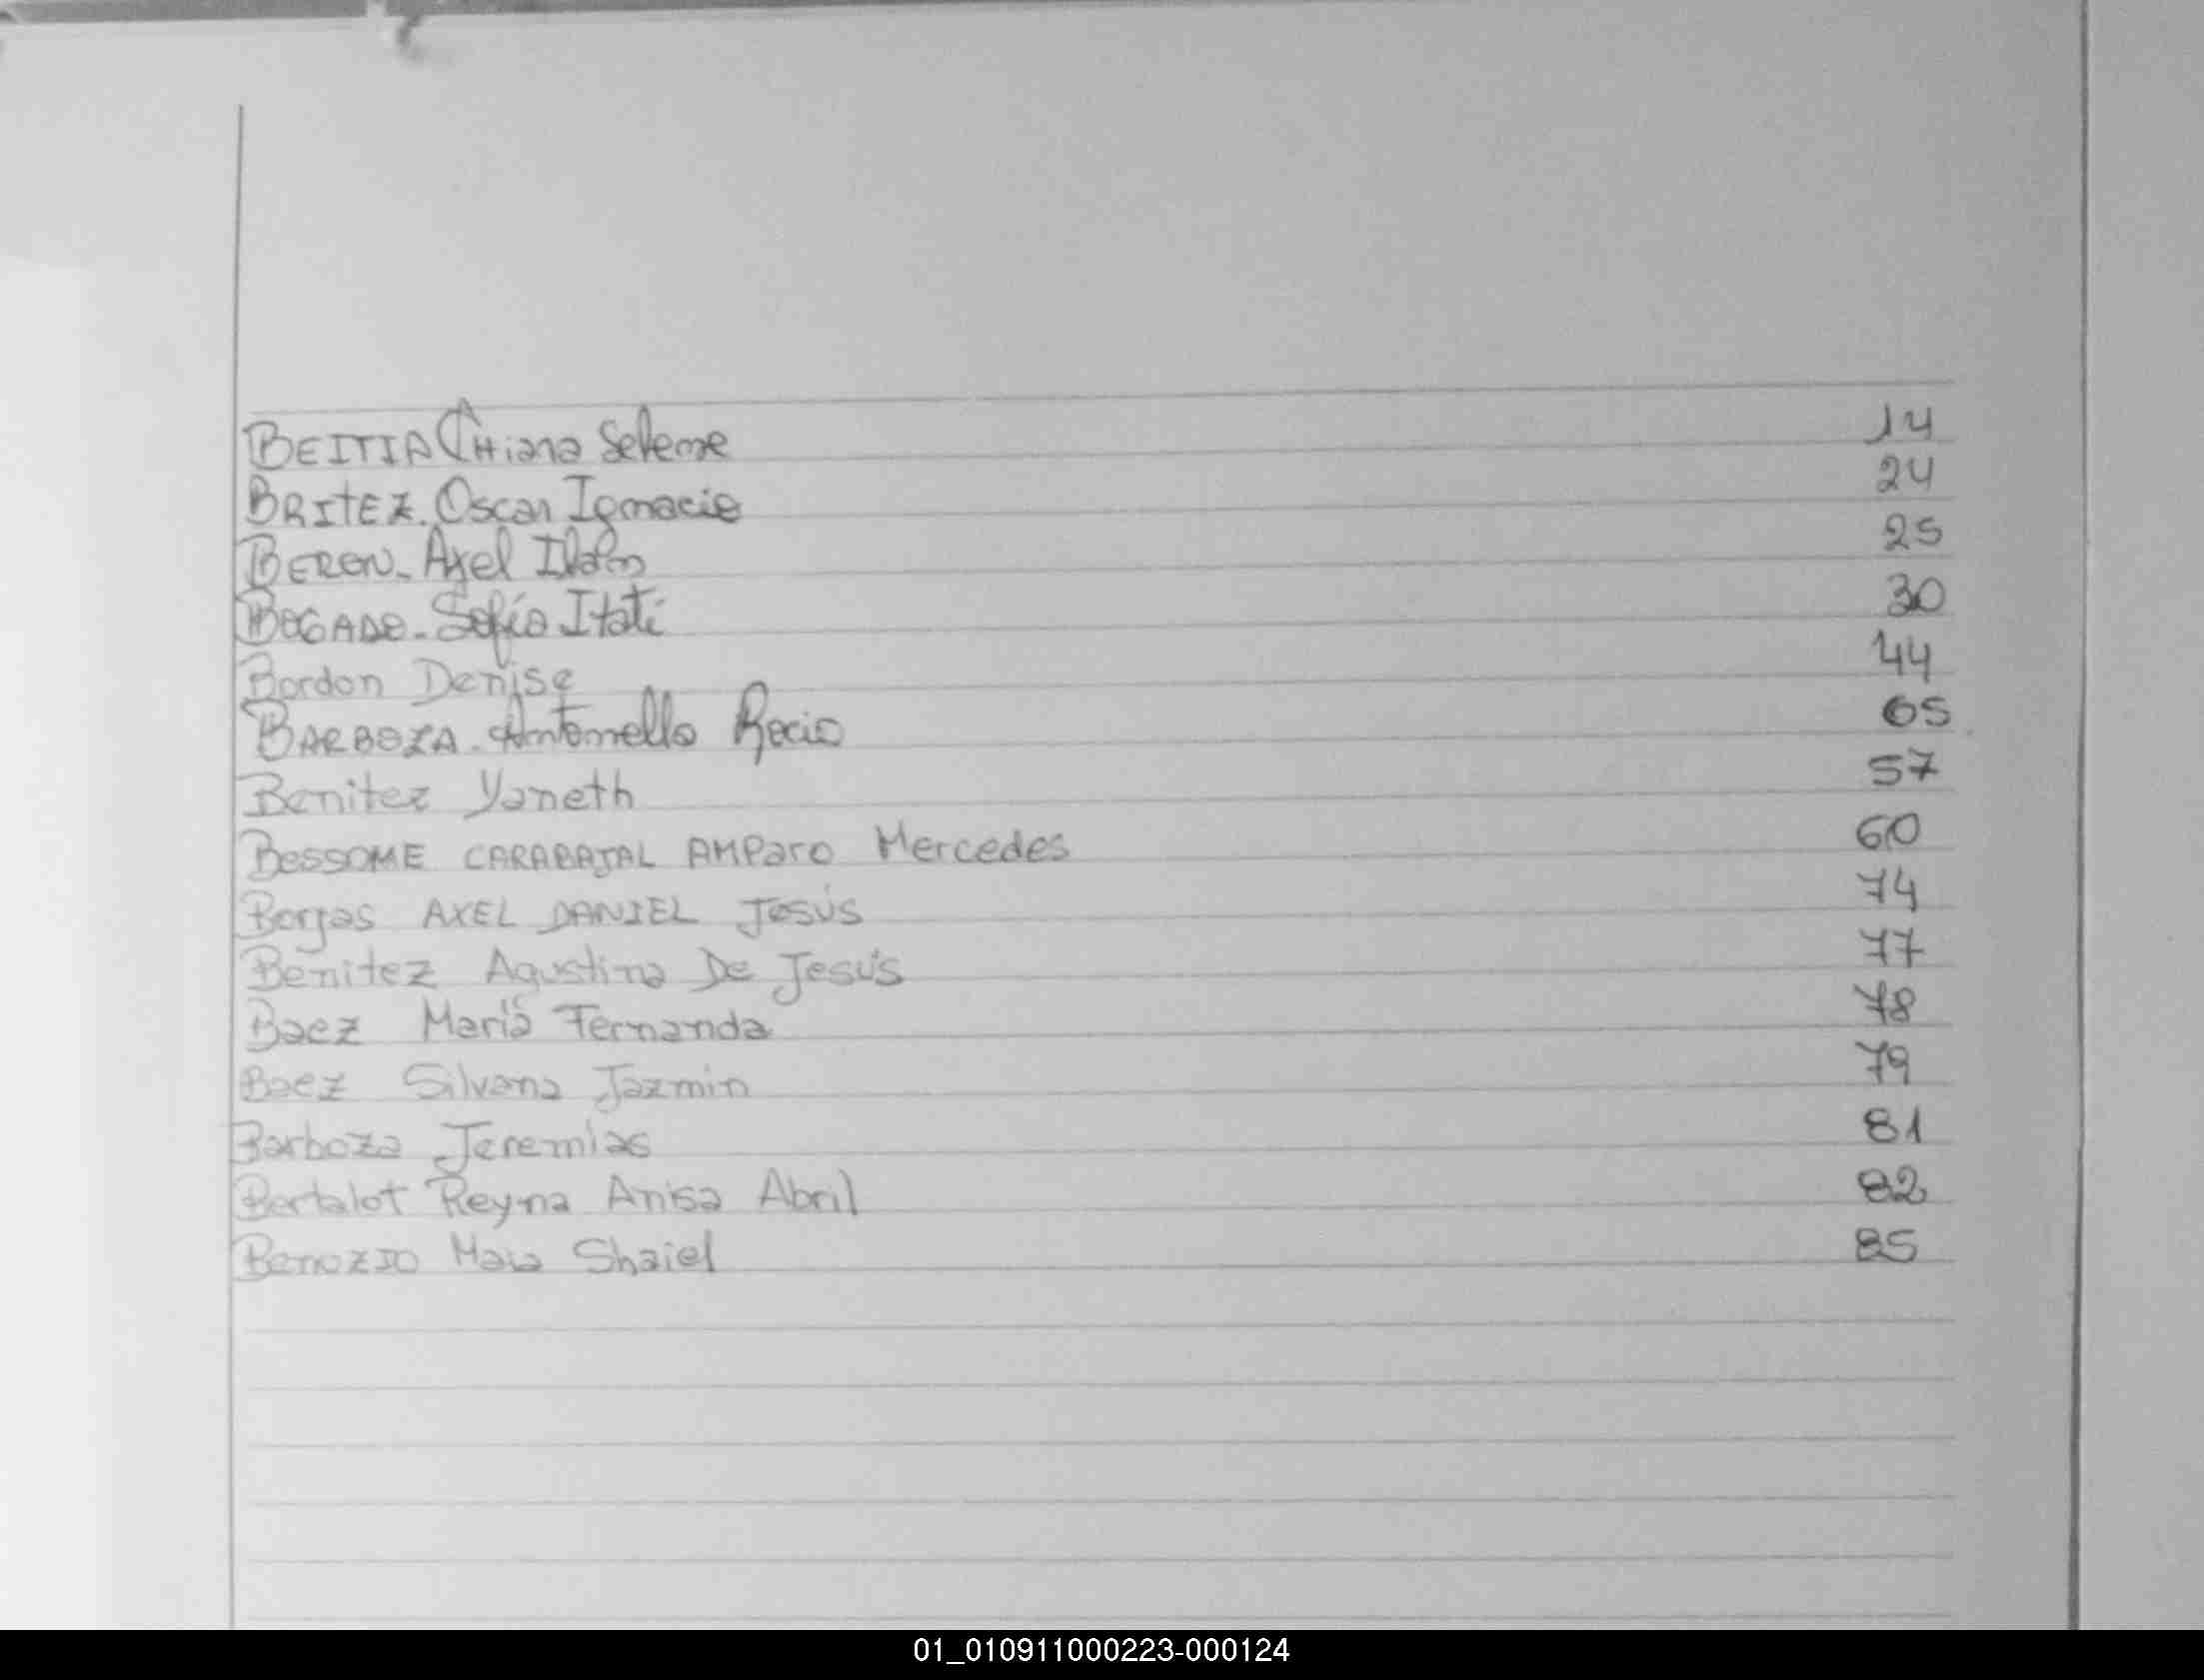 BEITIA CHiana Selene 14
BRITEZ. Oscar Ignacio 24
BERON - Axel Ilan 25
BOGADO - Sofía Itatí 30
Bordon Denise 44
BARBOZA - Antonella Rocio 65
Benitez Yaneth 57
BESSOME CARABAJAL AMParo Mercedes 60
Borjas AXEL DANIEL JESÚS 74
Benitez Agustina De Jesús 77
Baez María Fernanda 78
Baez Silvana Jazmin 79
Barboza Jeremías 81
Bertalot Reyna Anisa Abril 82
Benozzo Maia Shaiel 85
01_010911000223-000124